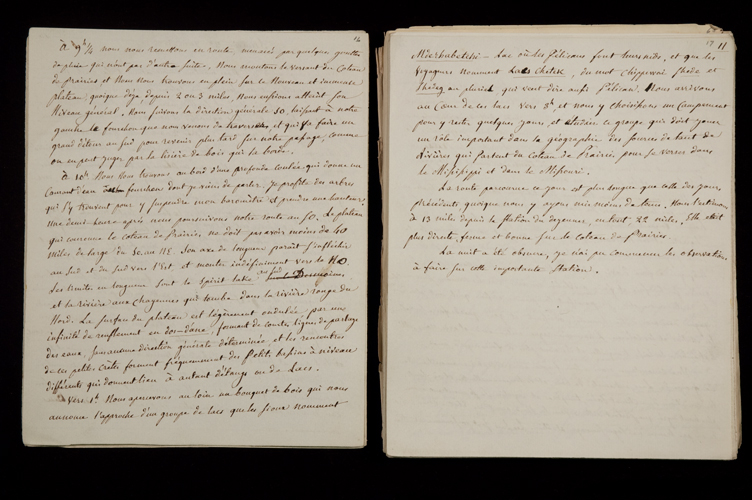 16
à 9h ¼ nous nous remettons en route, menacés par quelques gouttes
de pluie qui n'ont pas d'autre suite. Nous montons le versant du Coteau
de Prairies et nous nous trouvons en plein sur le nouveau et immense
plateau, quoique déja depuis 2 ou 3 miles, nous eussions atteint son
niveau général. Nous suivons la direction générale SO, laissant à notre
gauche le fourchon que nous venons de traverser, et qui va faire un
grand détour au sud pour revenir plus tard sur notre passage, comme
on en peut juger par la lisière de bois qui le borde.
à 10h Nous nous trouvons au bord d'une profonde coulée qui donne un
courant d'eau au fourchon dont je viens de parler. Je profite des arbres
qui s'y trouvent pour y suspendre mon baromètre et prendre une hauteur.
Une demi-heure après nous poursuivons notre route au SO. Le plateau
qui couronne le coteau de Prairies ne doit pas avoir moins de 40
miles de large du SO au NE. Son axe de longueur paraît s'infléchir
au sud et du sud vers l'Est, et monter indéfiniment vers le NO
Ses limites en longueur sont le Spirit lake
et la rivière aux Chayennes qui touche dans la rivière rouge du
Nord. La surface du plateau est légèrement ondulée, par une
infinité de renflements en dos-d'âne, formant de courtes lignes de partage
des eaux, sans aucune direction générale déterminée, et les rencontres
de ces petites crêtes forment fréquemment des petits bassins à niveaux
différents qui donnent lieu à autant d'étangs ou de Lacs.
Vers 1h Nous apercevons au loin un bouquet de bois qui nous
annonce l'approche d'un groupe de lacs que les Sioux nomment
17 11
Lac où les Pélicans font leurs nids, et que les
Voyageurs nomment Lac Chetek, du mot Chippewai Shede et
Sheteg au pluriel qui veut dire aussi Pélican. Nous arrivons
au cœur de ces lacs vers 3h et nous y choisissons un campement
pour y rester quelques jours et étudier ce groupe qui doit jouer
un rôle important dans la géographie des sources de tant de
Rivières qui partent du Coteau de Prairies pour se verser dans
le Mississippi et dans le Missouri.
La route parcourue ce jour est plus longue que celle des jours
précédents quoique nous y ayons mis moins de tems. Nous l'estimons
à 13 miles depuis la station du déjeuner, en tout 22 miles. Elle est
plus directe, ferme et bonne sur le coteau des Prairies.
La nuit a été obscure, je n'ai pu commencer les observations
à faire sur cette importante Station.